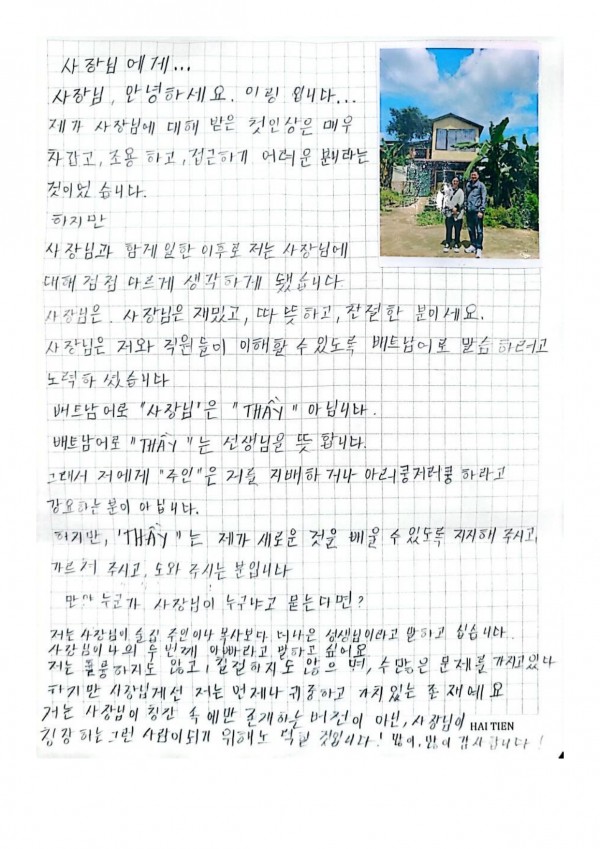 사장님에게...
사장님, 안녕하세요. 이링 입니다...
제가 사장님에 대해 받은 첫인상은 매우
차갑고, 조용 하고, 접근하기 어려운 분이라는
것이었 습니다.
하지만
사장님과 함게 일한 이후로 저는 사장님에
대해 점점 다르게 생각하게 됐습니다
사장님은. 사장님은 재밌고, 따 뜻하고, 친절한 분이세요.
사장님은 저와 직원들이 이해할 수 있도록 베트남어로 말씀 하려고
노력하 셨습니다
베트남어로 "사장님'은 "THẦY" 아닙니다.
베트남어로 "THẦY"는 선생님을 뜻 합니다.
그래서 저에게 "주인"은 저를 지배하 거나 이러쿵저러쿵 하라고
강요하는 분이 아닙니다.
하지만, 'THẦY"는 제가 새로운 것을 배울 수 있도록 지지해 주시고,
가르쳐 주시고, 도와 주시는 분입니다
만약 누군가 사장님이 누구냐고 묻는다면?
저는 사장님이 술집 주인이나 목사보다 더나은 선생님이라고 말하고 십습니다.
사장님이 나의 두 번째 아빠라고 말하고 싶어요
저는 훌륭하지도 않고, 완벽하지도 않으 며, 수많은 문제를 가지고 있다
하지만 사장님께선 저는 언제나 귀중하고 가치 있는 존재예요
저는 사장님이 칭찬 속에만 존재하는 버전이 아닌, 사장님이 HAI TIEN
칭찬 하는 그런 사람이 되기 위해 노력할 것입니다! 많이, 많이 감사합니다!